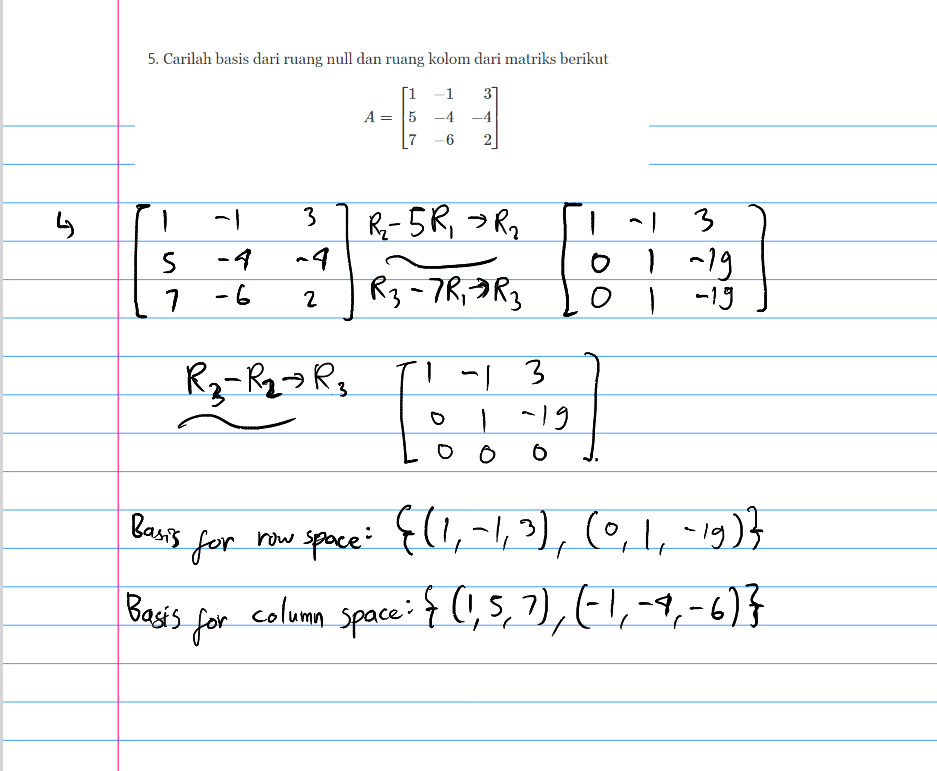 5. Carilah basis dari ruang null dan ruang kolom dari matriks berikut
A = [1 -1 3
5 -4 -4
7 -6 2]
↳ [1 -1 3 R₂-5R₁→R₂ [1 -1 3
5 -4 -4 0 1 -19
7 -6 2] R₃-7R₁→R₃ 0 1 -19]
R₃-R₂→R₃ [1 -1 3
0 1 -19
0 0 0].
Basis for row space: {(1,-1,3), (0,1,-19)}
Basis for column space: {(1,5,7),(-1,-4,-6)}